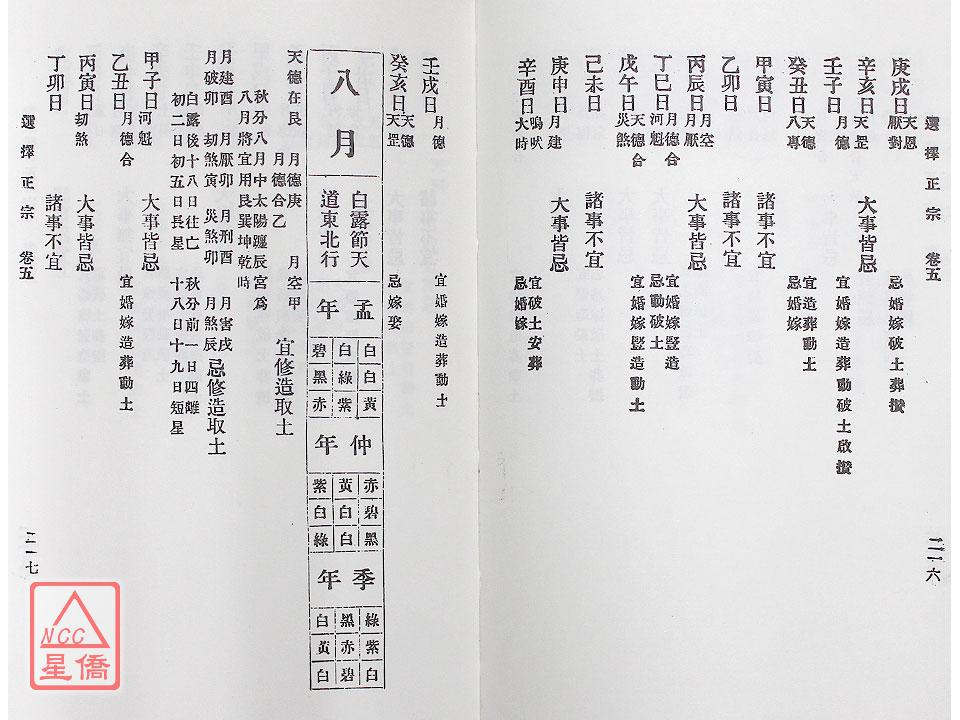 選擇正宗 卷五
二一六
庚戌日 天恩 厭對 忌婚嫁破土葬攢
辛亥日 天罡 大事皆忌
壬子日 月德 宜婚嫁造葬動破土啟攢
癸丑日 天德 八專 宜造葬動土 忌婚嫁
甲寅日 諸事不宜
乙卯日 諸事不宜
丙辰日 月空 月厭 大事皆忌
丁巳日 月德合 河魁 宜婚嫁豎造 忌動破土
戊午日 天德合 災煞 宜婚嫁豎造動土
己未日 諸事不宜
庚申日 月建 大事皆忌
辛酉日 鳴吠 大時 宜破土安葬 忌婚嫁
壬戌日 月德 宜婚嫁造葬動土
癸亥日 天德 天罡 忌嫁娶
八月
白露節天道東北行
孟年
白 白 碧
白 綠 黑
黃 紫 赤
仲年
赤 黃 紫
碧 白 白
黑 白 綠
季年
綠 黑 白
紫 赤 黃
白 碧 白
天德在艮 月德庚 月空甲
月德合乙 宜修造取土
秋分八月中太陽躔辰宮為
八月將宜用艮巽坤乾時
月建酉 月厭卯 月刑酉 月害戌
月破卯 劫煞寅 災煞卯 月煞辰 忌修造取土
白露後十八日往亡 秋分前一日四離
初二日初五日長星 十八日十九日短星
甲子日 河魁 大事皆忌
乙丑日 月德合 宜婚嫁造葬動土
丙寅日 劫煞 大事皆忌
丁卯日 諸事不宜
選擇正宗 卷五
二一七
NCC
星僑